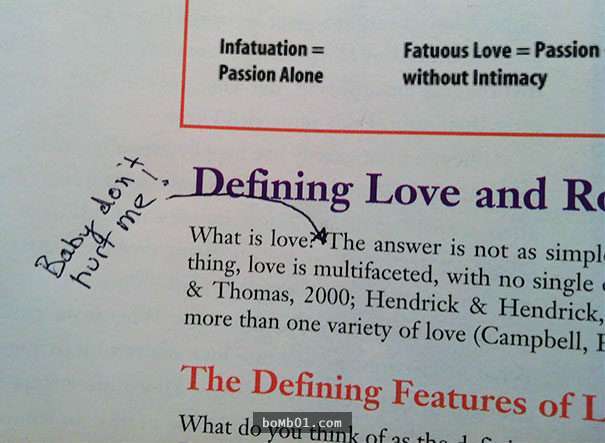 Infatuation =
Passion Alone
Fatuous Love = Passion
without Intimacy
Baby don't
hurt me!
Defining Love and Ro
What is love? The answer is not as simpl
thing, love is multifaceted, with no single
& Thomas, 2000; Hendrick & Hendrick,
more than one variety of love (Campbell,
The Defining Features of L
What do you think of as the
boMb01.com